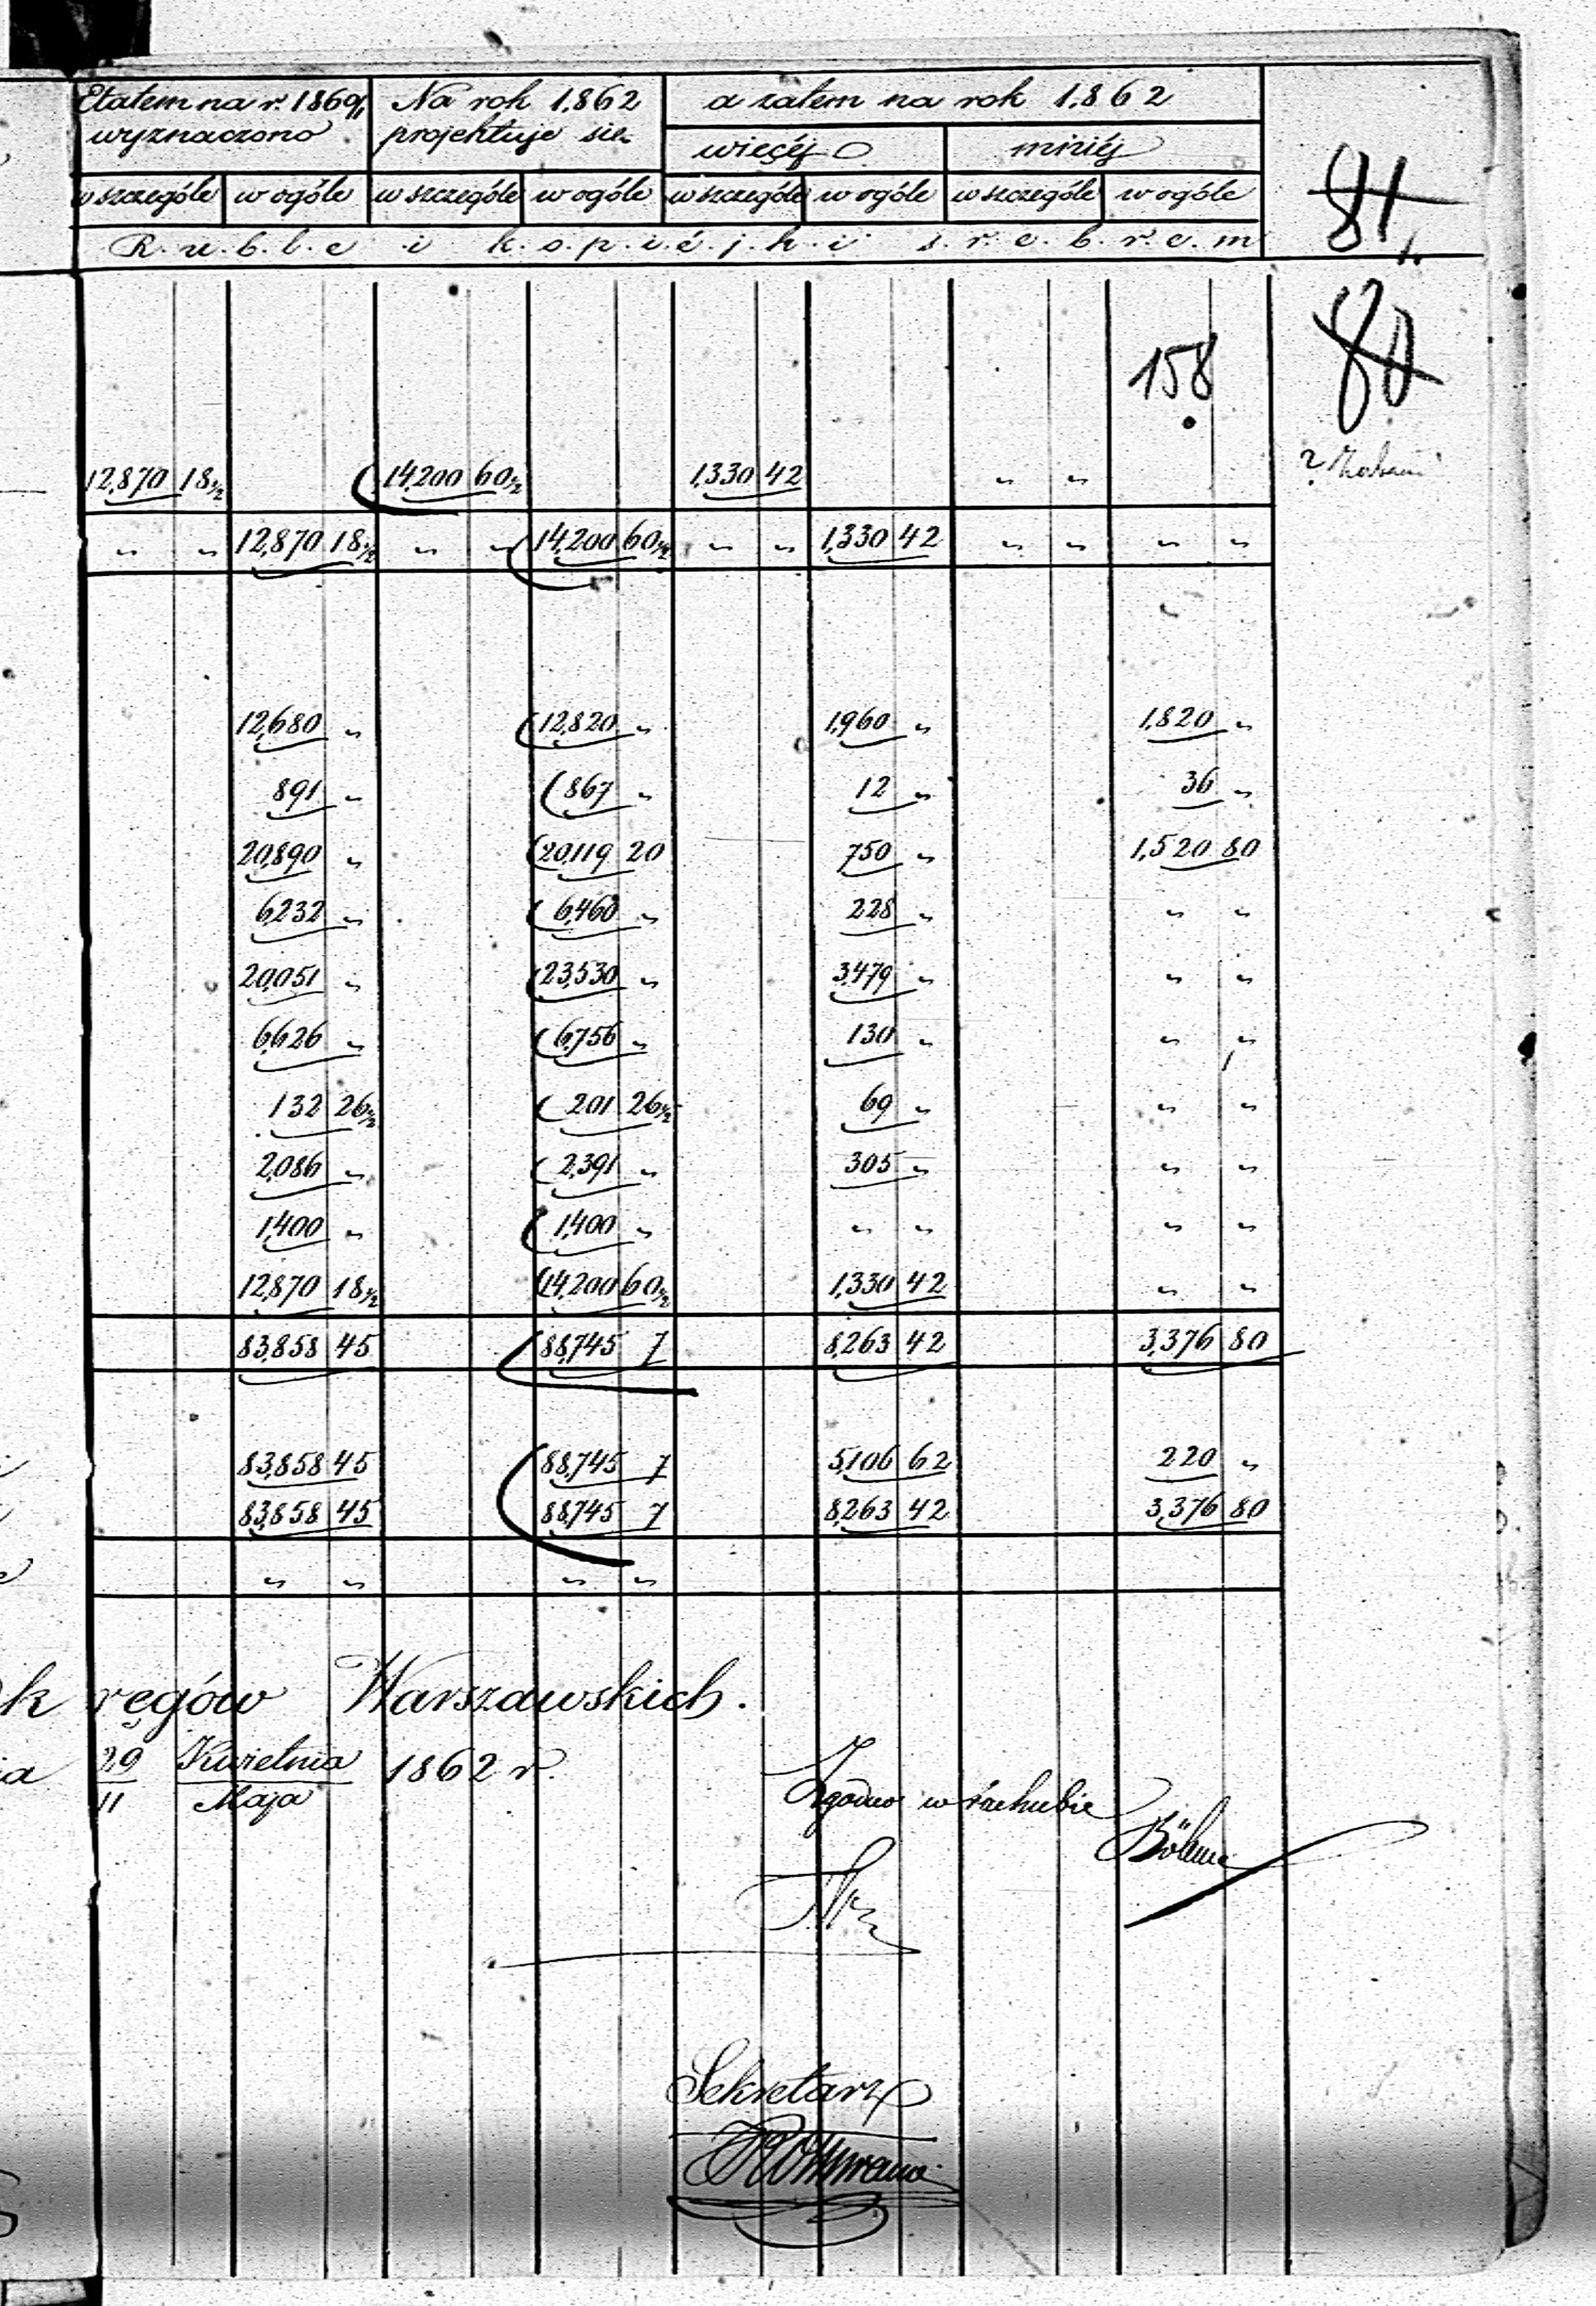 Etatem na r. 1860/1 Na rok 1862 a zatem na rok 1862
wyznaczono projektuje się więcéj mniéj
w szczególe w ogóle w szczególe w ogóle w szczególe w ogóle w szczególe w ogóle
Ruble i kopiéjki srebrem
81
80
158
12,870 18½ 14,200 60½ 1,330 42 " "
" " 12,870 18½ " " 14,200 60½ " " 1,330 42 " " " "
12,680 " 12,820 " 1,960 " 1,820 "
891 " 867 " 12 " 36 "
20,890 " 20,119 20 750 " 1,520 80
6,232 " 6,460 " 228 " " "
20,051 " 23,530 " 3,479 " " "
6,626 " 6,756 " 130 " " "
132 26½ 201 26½ 69 " " "
2,086 " 2,391 " 305 " " "
1,400 " 1,400 " " " " "
12,870 18½ 14,200 60½ 1,330 42 " "
83,858 45 88,745 7 8,263 42 3,376 80
83,858 45 88,745 7 5,106 62 220 "
83,858 45 88,745 7 8,263 42 3,376 80
" " " "
kręgów Warszawskich.
29 Kwietnia 1862 r.
11 Maja
Zgodno w rachubie
Böhme
Sekretarz